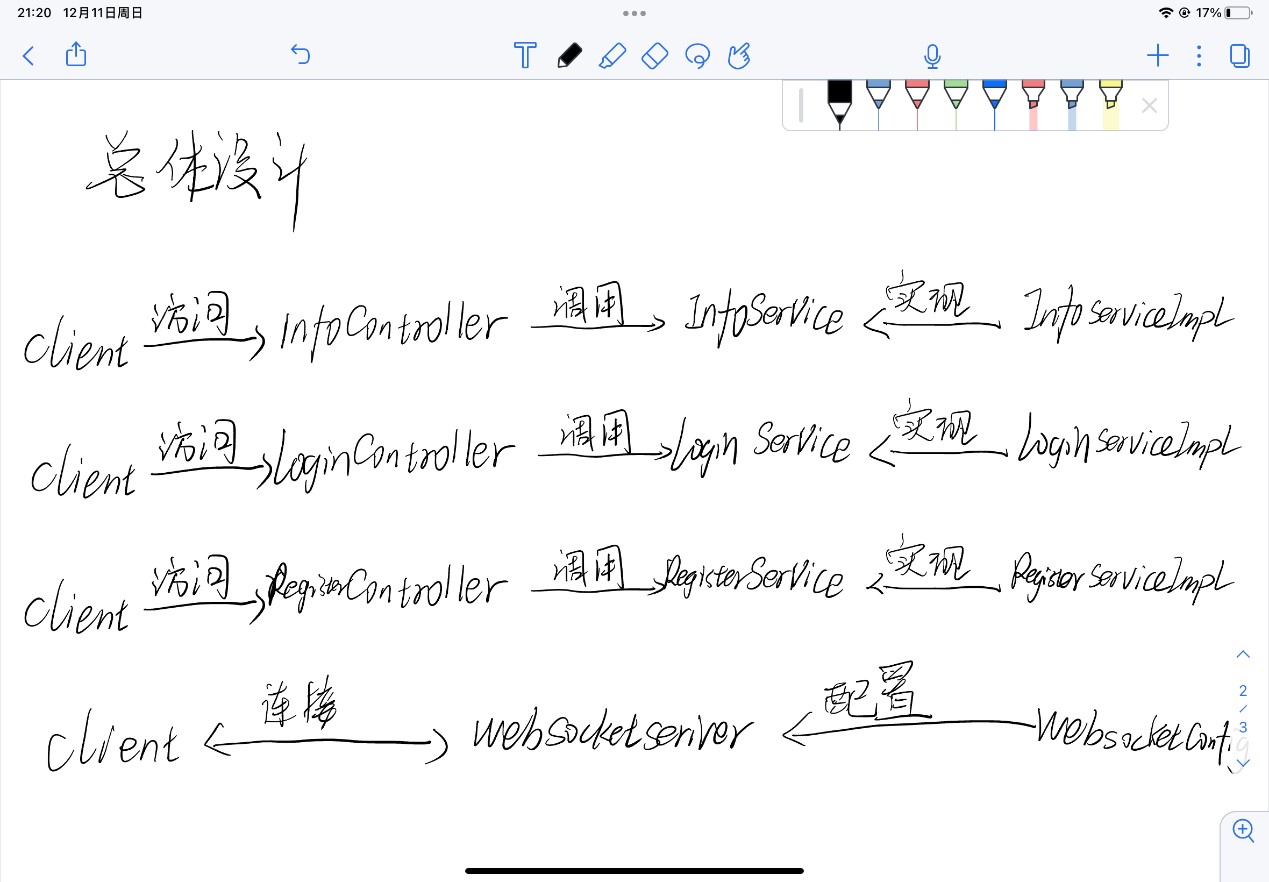 21:20 12月11日周日
17%
总体设计
Client 访问 InfoController 调用 InfoService 实现 InfoServiceImpl
Client 访问 LoginController 调用 Login Service 实现 LoginServiceImpl
Client 访问 RegisterController 调用 RegisterService 实现 RegisterServiceImpl
2
/
3
Client 连接 Websocketseriver 配置 WebsocketConfig